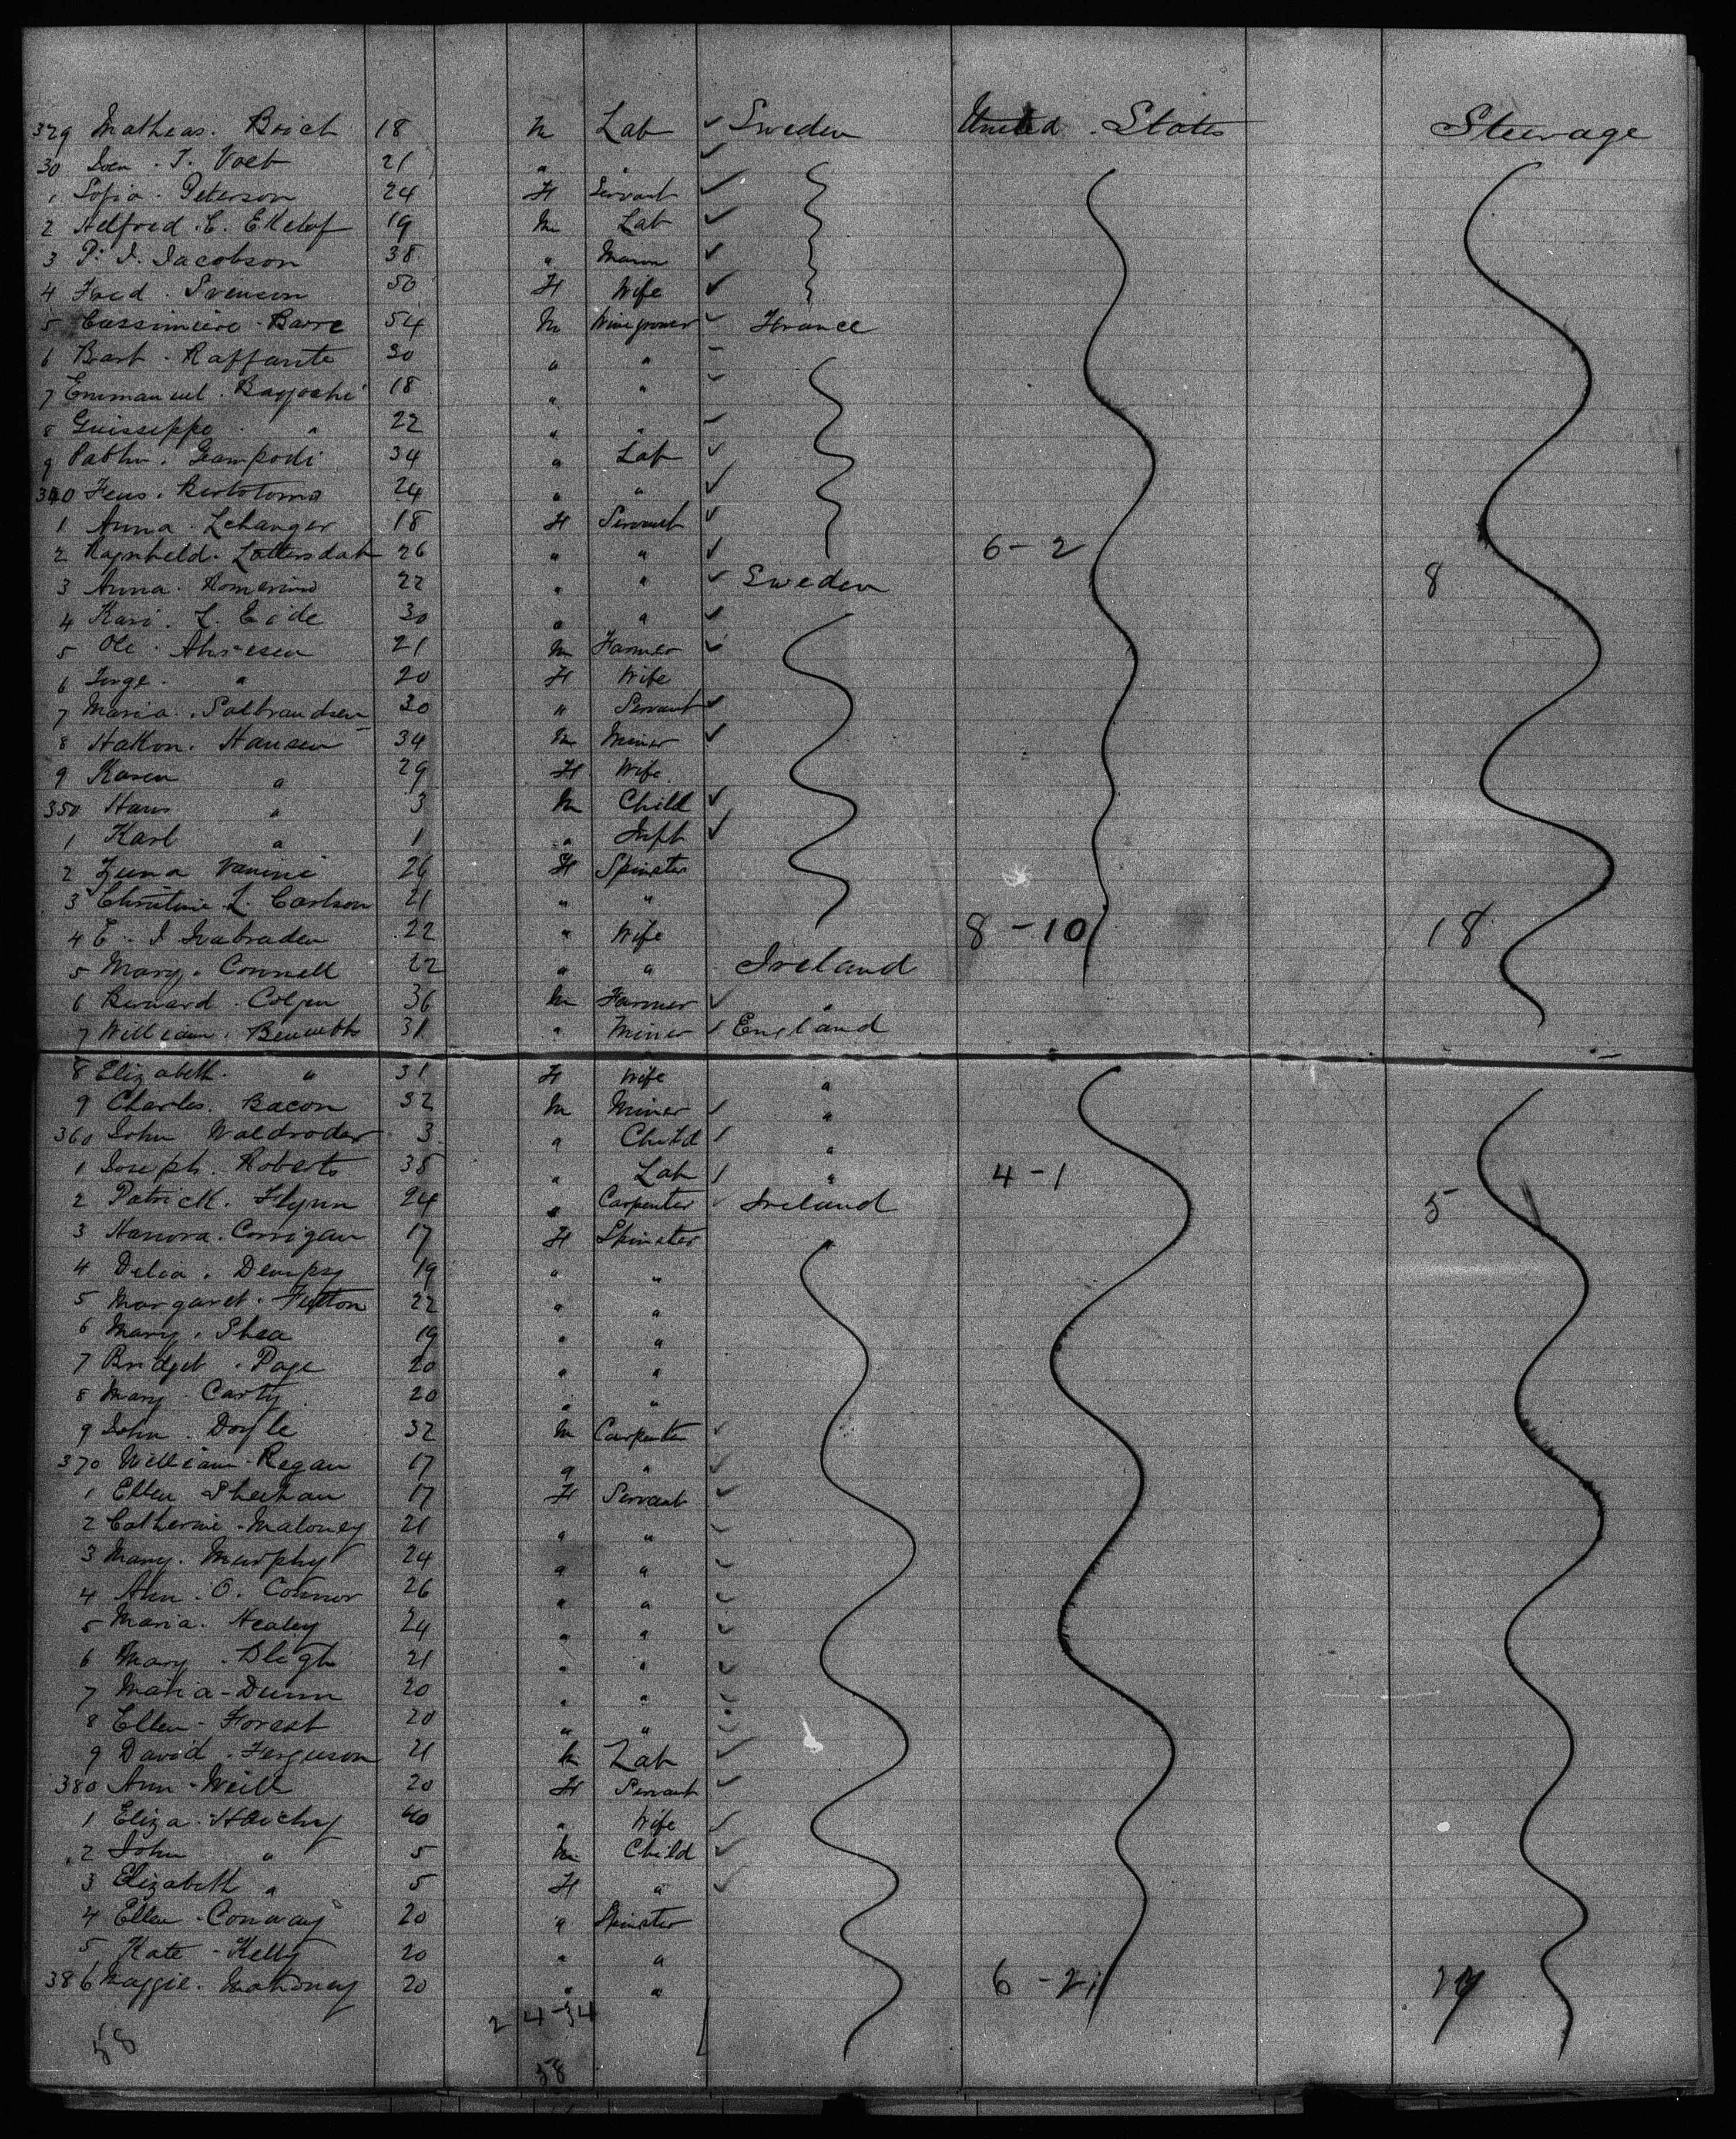 329 Matheas. Brich 18 M Lab ✓ Sweden United States Steerage
30 Sven. T. Voet 21 " " ✓
1 Sofia. Peterson 24 F Servant ✓
2 Alfred. C. Ekelof 19 M Lab ✓
3 P. I. Jacobson 38 " Mason ✓
4 Fred. Svenson 50 F Wife ✓
5 Cassimiere. Barre 54 M Winegrower ✓ France
6 Bart. Raffante 30 " "
7 Emmanuel. 18 " "
8 Guisseppe. " 22 " "
9 Gampodi 34 " Lab ✓
340 24 " " ✓
1 Anna. Lehanger 18 F Servant ✓
2 Ragnheld. 26 " " ✓ 6-2
3 Anna. 22 " " ✓ Sweden 8
4 Kari. L. Eide 30 " " ✓
5 Ole. 21 M Farmer ✓
6 Inge. " 20 F Wife
7 Maria. Salbrandsen 30 " Servant ✓
8 Hakon. Hansen 34 M Miner ✓
9 Karen " 29 F Wife
350 Hans " 3 M Child ✓
1 Karl " 1 " Inft ✓
2 Vanini 26 F Spinster
3 Christine L. Carlson 21 " "
4 E. I 22 " Wife 8-10 18
5 Mary. Connell 22 " " Ireland
6 Bernard. Colgan 36 M Farmer ✓ "
7 William. Bennetts 31 " Miner ✓ England
8 Elizabeth. " 31 F Wife "
9 Charles. Bacon 32 M Miner ✓ "
360 John 3 " Child ✓ "
1 Joseph. Roberts 38 " Lab ✓ " 4-1
2 Patrick. Flynn 24 " Carpenter ✓ Ireland 5
3 Hanora. Corrigan 17 F Spinster "
4 Delia. Dempsy 19 " "
5 Margaret. 22 " "
6 Mary. Shea 19 " "
7 Bridget. Page 20 " "
8 Mary. Carty 20 " "
9 John. Doyle 32 M Carpenter ✓
370 William. Regan 17 " " ✓
1 Ellen Sheehan 17 F Servant ✓
2 Catherine. Maloney 21 " " ✓
3 Mary. Murphy 24 " " ✓
4 Ann. O. Connor 26 " " ✓
5 Maria. Healey 24 " " ✓
6 Mary. Bligh 21 " " ✓
7 Maria - Dunn 20 " " ✓
8 Ellen - Forest 20 " " ✓
9 David. Ferguson 21 M Lab ✓
380 Ann - Weill 20 F Servant ✓
1 Eliza. 40 " Wife ✓
2 John " 5 M Child ✓
3 Elizabeth " 5 F " ✓
4 Ellen - Conway 20 " Spinster
5 Kate - Kelly 20 " "
386 Maggie. Mahoney 20 " " 6-21
24-34
58 58